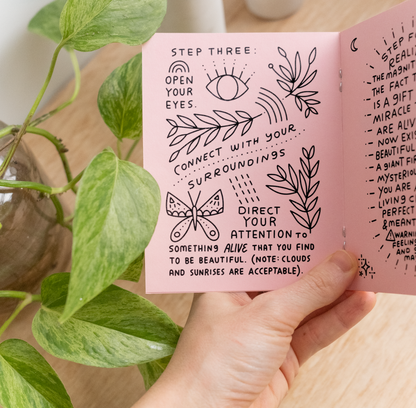 STEP THREE:
OPEN
YOUR
EYES.
CONNECT WITH YOUR
SURROUNDINGS
DIRECT
YOUR
ATTENTION TO
SOMETHING ALIVE THAT YOU FIND
TO BE BEAUTIFUL. (NOTE: CLOUDS
AND SUNRISES ARE ACCEPTABLE).
STEP
THE MAGNIT
THE FACT
IS A GIFT
MIRACLE
ARE ALIV
NOW EXIS
BEAUTIFUL
A GIANT
MYSTERIOU
YOU ARE
LIVING
PERFECT
& MEANT
WARNIN
FEELIN
AND